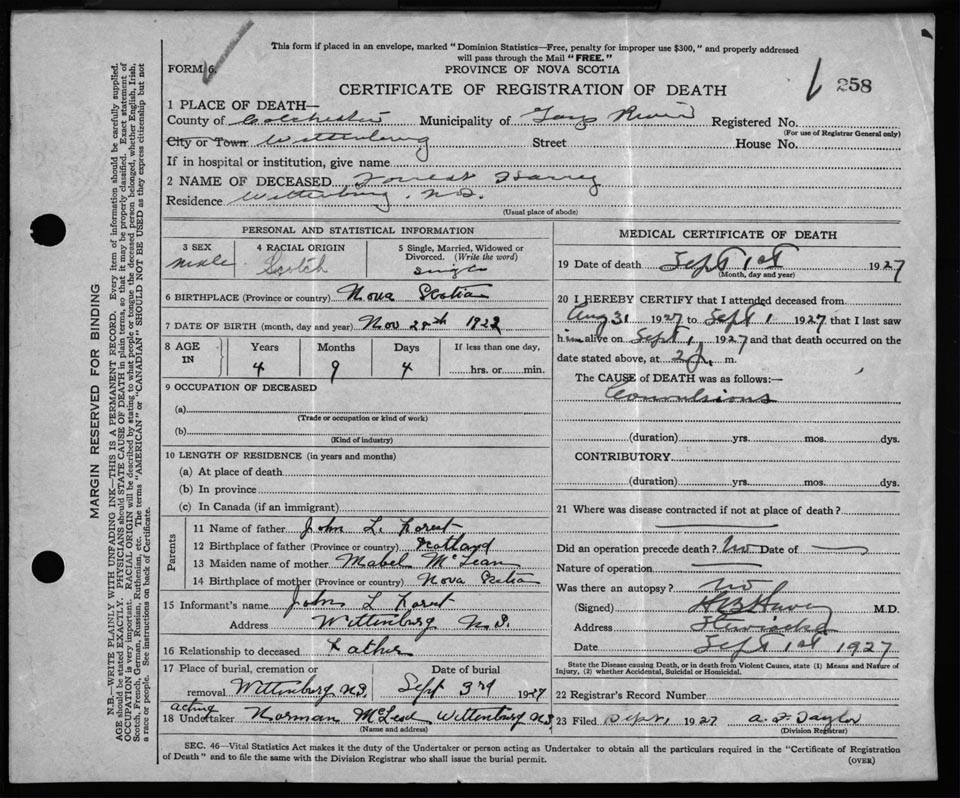 This form if placed in an envelope, marked "Dominion Statistics—Free, penalty for improper use $300," and properly addressed
will pass through the Mail "FREE."
FORM 6.
PROVINCE OF NOVA SCOTIA
CERTIFICATE OF REGISTRATION OF DEATH
258
1 PLACE OF DEATH—
County of Colchester Municipality of Registered No.
(For use of Registrar General only)
City or Town Wittenburg Street House No.
If in hospital or institution, give name
2 NAME OF DECEASED Forrest Harvey
Residence Wittenburg. N.S.
(Usual place of abode)
PERSONAL AND STATISTICAL INFORMATION
3 SEX
male
4 RACIAL ORIGIN
Scotch
5 Single, Married, Widowed or
Divorced. (Write the word)
single
6 BIRTHPLACE (Province or country) Nova Scotia
7 DATE OF BIRTH (month, day and year) Nov 28th 1922
8 AGE IN
Years Months Days If less than one day,
4 9 4 hrs. or min.
9 OCCUPATION OF DECEASED
(a)
(Trade or occupation or kind of work)
(b)
(Kind of industry)
10 LENGTH OF RESIDENCE (in years and months)
(a) At place of death
(b) In province
(c) In Canada (if an immigrant)
Parents
11 Name of father John L. Forest
12 Birthplace of father (Province or country) Scotland
13 Maiden name of mother Mabel McLean
14 Birthplace of mother (Province or country) Nova Scotia
15 Informant's name John L Forest
Address Wittenburg N.S.
16 Relationship to deceased Father
17 Place of burial, cremation or
removal Wittenburg N.S.
Date of burial
Sept 3rd 1927
acting
18 Undertaker Norman McLeod Wittenburg N.S.
(Name and address)
MEDICAL CERTIFICATE OF DEATH
19 Date of death Sept 1st 1927
(Month, day and year)
20 I HEREBY CERTIFY that I attended deceased from
Aug 31 1927 to Sept 1 1927 that I last saw
him alive on Sept 1 1927 and that death occurred on the
date stated above, at 2 m.
The CAUSE of DEATH was as follows:—
Convulsions
(duration) yrs. mos. dys.
CONTRIBUTORY
(duration) yrs. mos. dys.
21 Where was disease contracted if not at place of death?
Did an operation precede death? No Date of
Nature of operation
Was there an autopsy? no
(Signed) M.D.
Address
Date Sept 1st 1927
State the Disease causing Death, or in death from Violent Causes, state (1) Means and Nature of
Injury, (2) whether Accidental, Suicidal or Homicidal.
22 Registrar's Record Number
23 Filed Sept, 1 1927 A. F. Taylor
(Division Registrar)
SEC. 46—Vital Statistics Act makes it the duty of the Undertaker or person acting as Undertaker to obtain all the particulars required in the "Certificate of Registration
of Death" and to file the same with the Division Registrar who shall issue the burial permit.
(OVER)
MARGIN RESERVED FOR BINDING
N.B.—WRITE PLAINLY WITH UNFADING INK—THIS IS A PERMANENT RECORD. Every item of information should be carefully supplied.
AGE should be stated EXACTLY. PHYSICIANS should STATE CAUSE OF DEATH in plain terms, so that it may be properly classified. Exact statement of
OCCUPATION is very important. RACIAL ORIGIN will be described by stating to what people or tongue the deceased person belonged, whether English, Irish,
Scotch, French, German, Russian, Ruthenian, etc. The terms "AMERICAN" or "CANADIAN" SHOULD NOT BE USED as they express citizenship but not
a race or people. See instructions on back of Certificate.